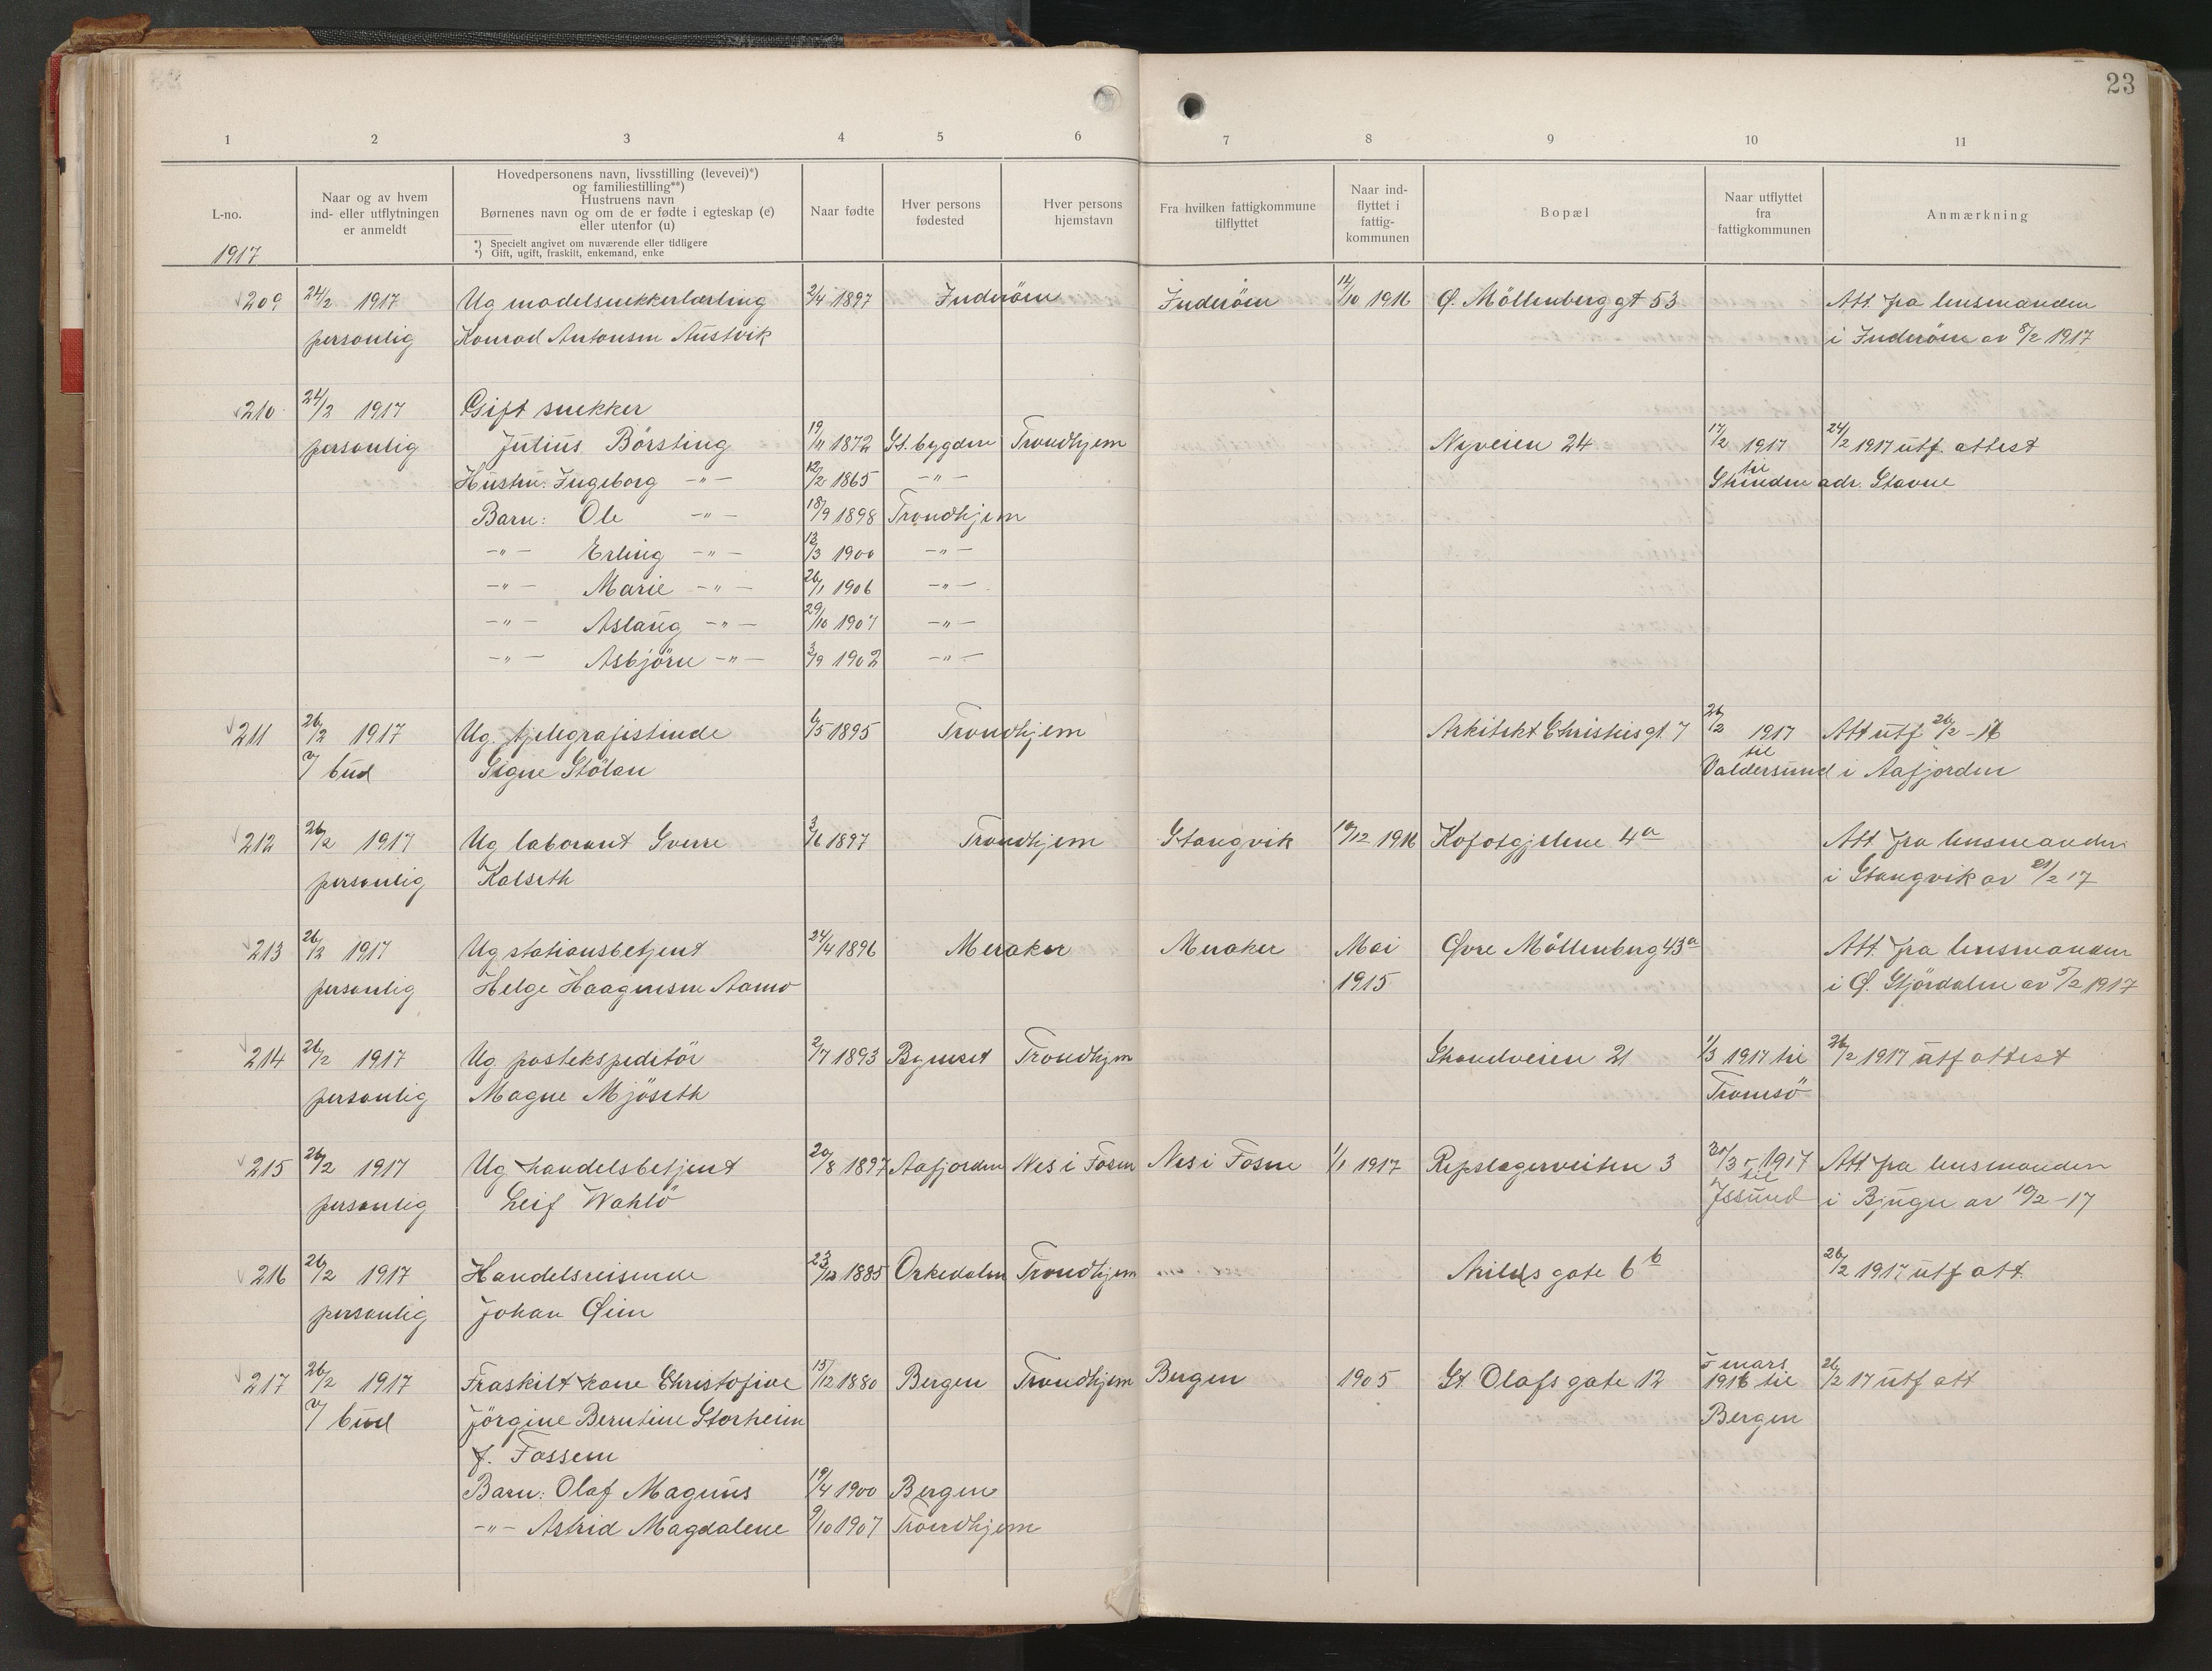 23
1 2 3 4 5 6 7 8 9 10 11
L-no.
1917
Naar og av hvem
ind- eller utflytningen
er anmeldt
Hovedpersonens navn, livsstilling (levevei)*)
og familiestilling**)
Hustruens navn
Børnenes navn og om de er fødte i egteskap (e)
eller utenfor (u)
*) Specielt angivet om nuværende eller tidligere
*) Gift, ugift, fraskilt, enkemand, enke
Naar fødte
Hver persons
fødested
Hver persons
hjemstavn
Fra hvilken fattigkommune
tilflyttet
Naar ind-
flyttet i
fattig-
kommunen
Bopæl
Naar utflyttet
fra
fattigkommunen
Anmærkning
209 24/2 1917 Ug modelsnekkerlærling 2/4 1897 Inderöen Inderöen 14/10 1916 Ø. Möllenberg gt 53 Att. fra lensmanden
personlig Konrad Antonsen Austvik i Inderöen av 8/2 1917
210 24/2 1917 Gift snekker
personlig Julius Börsting 19/11 1872 St. bygden Trondhjem Nyveien 24 17/2 1917 24/2 1917 utf. attest
Hustru: Ingeborg -"- 12/2 1865 -"- til Strinden adr. Stavne
Barn: Ole -"- 18/9 1898 Trondhjem
-"- Erling -"- 13/3 1900 -"-
-"- Marie -"- 26/1 1906 -"-
-"- Aslaug -"- 29/10 1907 -"-
-"- Asbjörn -"- 3/9 1902 -"-
211 26/2 1917 Ug. tjelegrafistinde 6/5 1895 Trondhjem Arkitekt Christies gt. 7 26/2 1917 Att utf 26/2 - 17
v/ bud Signe Stölan til Valdersund i Aafjorden
212 26/2 1917 Ug laborant Sverre 3/6 1897 Trondhjem Stangvik 10/12 1916 Kofotgjelene 4a Att. fra lensmanden
personlig Kalseth i Stangvik av 21/2 17
213 26/2 1917 Ug stationsbetjent 24/4 1896 Meraker Meraker Mai Øvre Möllenberg 43a Att. fra lensmanden
personlig Helge Haagensen Aamo 1915 i Ø. Stjördalen av 5/2 1917
214 26/2 1917 Ug. postekspeditör 2/7 1893 Bynesset Trondhjem Strandveien 21 1/3 1917 til 26/2 1917 utf attest
personlig Magne Mjöseth Tromsö
215 26/2 1917 Ug handelsbetjent 20/8 1897 Aafjorden Nes i Fosen Nes i Fosen 1/1 1917 Repslagerveiten 3 30/3 - 1917 Att. fra lensmanden
personlig Leif Wahlö til Jssund i Bjugn av 10/2 - 17
216 26/2 1917 Handelsreisende 23/12 1885 Orkedalen Trondhjem Arilds gate 6b 26/2 1917 utf att.
personlig Johan Øien
217 26/2 1917 Fraskilt kone Christofine 15/12 1880 Bergen Trondhjem Bergen 1905 St. Olafs gate 12 5 mars 26/2 17 utf att
v/ bud Jörgine Berntine Storheim 1916 til Bergen
f. Fossem
Barn: Olaf Magnus 19/4 1900 Bergen
-"- Astrid Magdalene 9/10 1907 Trondhjem